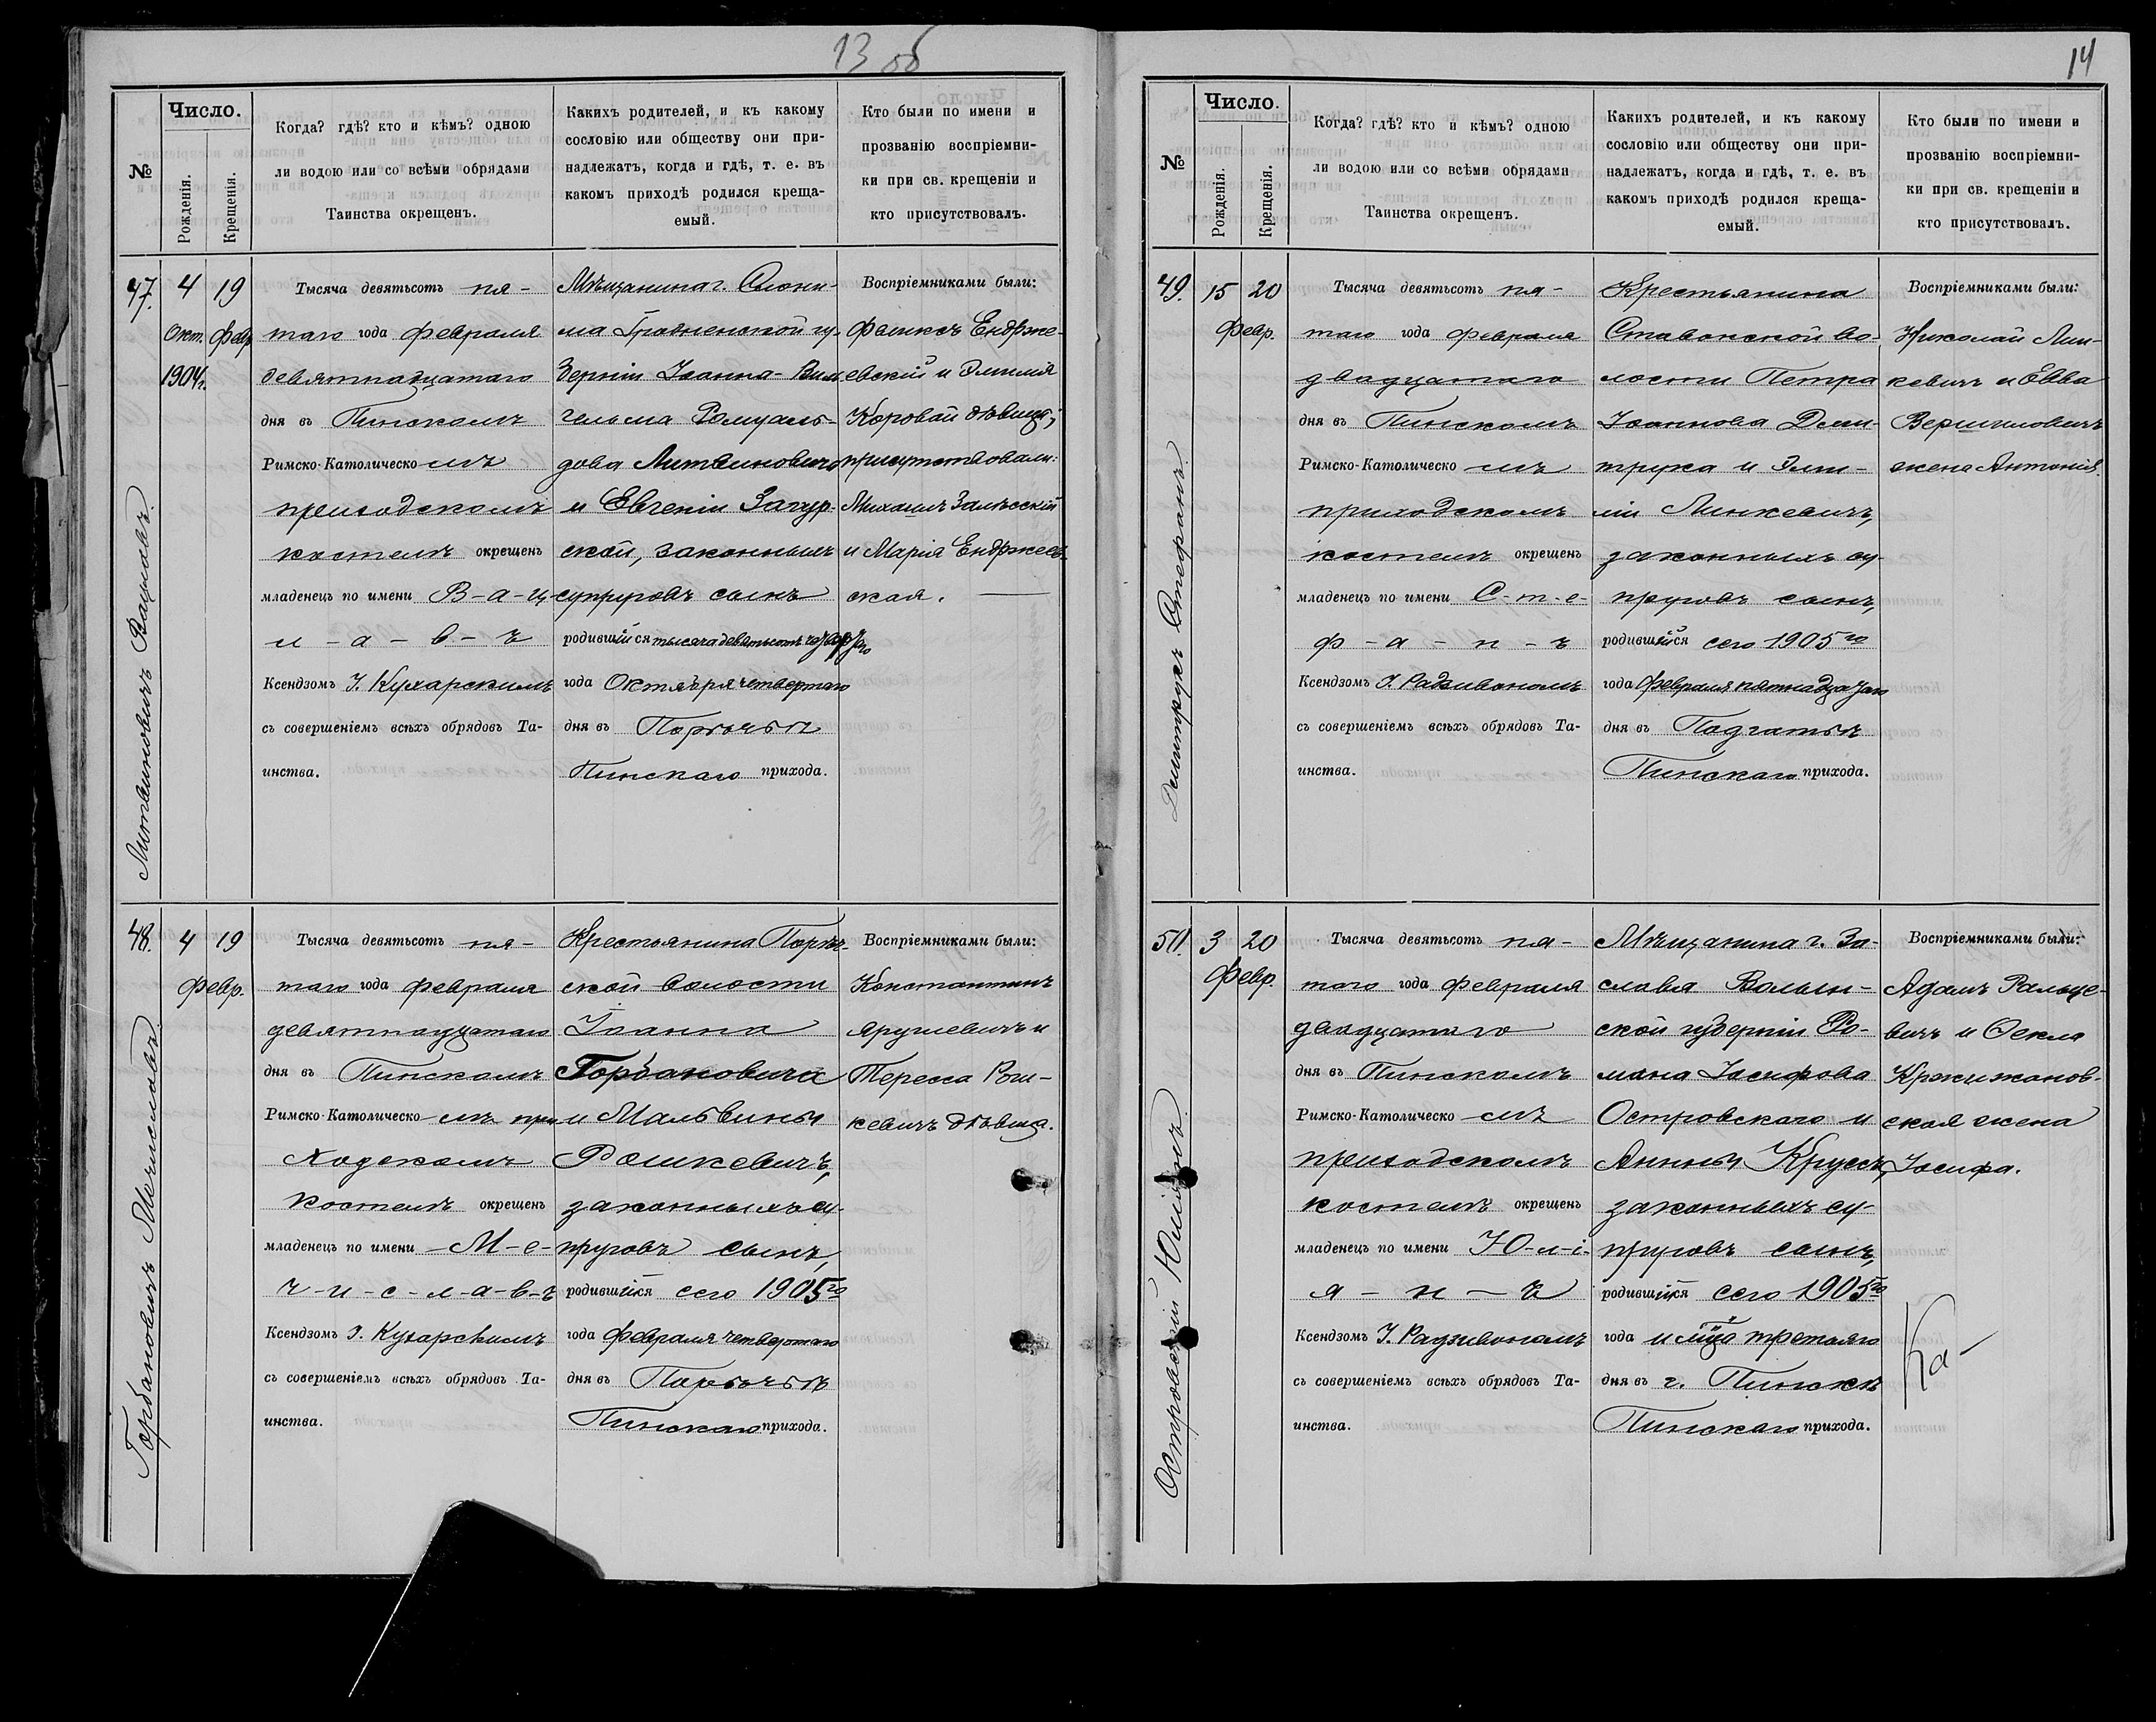 13 об
№
Число.
Рожденія.
Крещенія.
Когда? гдѣ? кто и кѣмъ? одною
ли водою или со всѣми обрядами
Таинства окрещенъ.
Какихъ родителей, и къ какому
сословію или обществу они при-
надлежатъ, когда и гдѣ, т. е. въ
какомъ приходѣ родился креща-
емый.
Кто были по имени и
прозванію воспріемни-
ки при св. крещеніи и
кто присутствовалъ.
47.
Литвиновичъ Вацлавъ.
4 19
Окт. Февр
1904г.
Тысяча девятьсотъ пя-
таго года февраля
девятнадцатаго
дня въ Пинскомъ
Римско-Католическомъ
приходскомъ
костелѣ окрещенъ
младенецъ по имени В-а-ц-
л-а-в-ъ
Ксендзомъ І. Кухарскимъ
съ совершеніемъ всѣхъ обрядовъ Та-
инства.
Мѣщанина г. Слони-
ма Гродненской гу-
берніи Іоанна-Виль
гельма Ромуаль-
дова Литвиновича
и Евгеніи Загур-
ской, законныхъ
супруговъ сынъ
родившійся тысяча девятьсотъ четвертаго
года Октября четвертаго
дня въ Порѣчьи
Пинскаго прихода.
Воспріемниками были:
Феликсъ Ендрже-
евскій и Эмилія
Коровай дѣвица;
присутствовали:
Михаилъ Залѣсскій
и Марія Ендржеев-
ская.
48.
Горбановичъ Мечиславъ.
4 19
Февр.
Тысяча девятьсотъ пя-
таго года февраля
девятнадцатаго
дня въ Пинскомъ
Римско-Католическомъ при
ходскомъ
костелѣ окрещенъ
младенецъ по имени М-е-
ч-и-с-л-а-в-ъ
Ксендзомъ І. Кухарскимъ
съ совершеніемъ всѣхъ обрядовъ Та-
инства.
Крестьянина Порѣч-
ской волости
Іоанна
Горбановича
и Мальвины
Рошкевичъ,
законныхъ су-
пруговъ сынъ,
родившійся сего 1905го
года февраля четвертаго
дня въ Порѣчьѣ
Пинскаго прихода.
Воспріемниками были:
Константинъ
Ярушевичъ и
Тереса Рош-
кевичъ дѣвица.
14
№
Число.
Рожденія.
Крещенія.
Когда? гдѣ? кто и кѣмъ? одною
ли водою или со всѣми обрядами
Таинства окрещенъ.
Какихъ родителей, и къ какому
сословію или обществу они при-
надлежатъ, когда и гдѣ, т. е. въ
какомъ приходѣ родился креща-
емый.
Кто были по имени и
прозванію воспріемни-
ки при св. крещеніи и
кто присутствовалъ.
49.
Дмитрукъ Стефанъ
15 20
Февр.
Тысяча девятьсотъ пя-
таго года февраля
двадцатаго
дня въ Пинскомъ
Римско-Католическомъ
приходскомъ
костелѣ окрещенъ
младенецъ по имени С-т-е-
ф-а-н-ъ
Ксендзомъ І. Радзивономъ
съ совершеніемъ всѣхъ обрядовъ Та-
инства.
Крестьянина
Ставокской во-
лости Петра
Іоаннова Дми-
трука и Эми-
ліи Линкевичъ,
законныхъ су-
пруговъ сынъ,
родившійся сего 1905го
года февраля пятнадцатаго
дня въ Подгатьѣ
Пинскаго прихода.
Воспріемниками были:
Николай Лин-
кевичъ и Евва
Вершиловичъ
жена Антонія.
50.
Островскій Юліанъ.
3 20
Февр.
Тысяча девятьсотъ пя-
таго года февраля
двадцатаго
дня въ Пинскомъ
Римско-Католическомъ
приходскомъ
костелѣ окрещенъ
младенецъ по имени Ю-л-і-
а-н-ъ
Ксендзомъ І. Радзивономъ
съ совершеніемъ всѣхъ обрядовъ Та-
инства.
Мѣщанина г. За-
славля Волын-
ской губерніи Ро-
мана Іосифова
Островскаго и
Анны Крусъ,
законныхъ су-
пруговъ сынъ,
родившійся сего 1905го
года и мца третьяго
дня въ г. Пинскѣ
Пинскаго прихода.
Воспріемниками были:
Адамъ Ральце-
вичъ и Текля
Кржижанов-
ская жена
Іосифа.